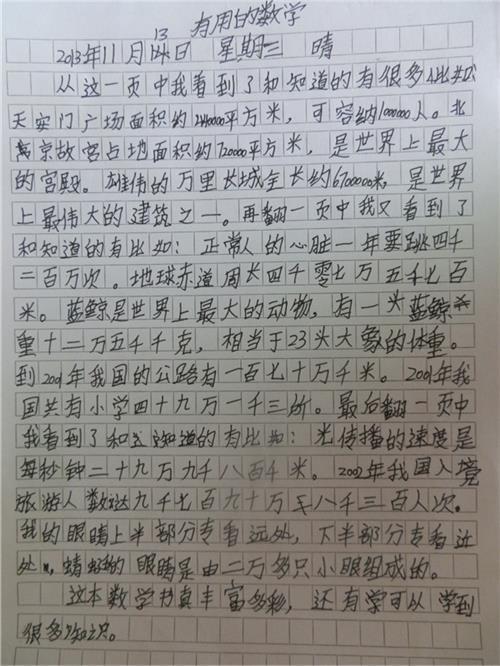 有用的数学
2013年11月13日 星期三 晴
从这一页中我看到了和知道的有很多,比如
天安门广场面积约440000平方米,可容纳1000000人。北
京故宫占地面积约720000平方米,是世界上最大
的宫殿。雄伟的万里长城全长约6700000米,是世界
上最伟大的建筑之一。再翻一页中我又看到了
和知道的有比如:正常人的心脏一年要跳四千
二百万次。地球赤道周长四千零七万五千七百
米。蓝鲸是世界上最大的动物,有一头蓝鲸
重十二万五千千克,相当于23头大象的体重。
到2001年我国的公路有一百七十万千米。2001年我
国共有小学四十九万一千三所。最后翻一页中
我看到了和知道的有比如:光传播的速度是
每秒钟二十九万九千八百千米。2002年我国入境
旅游人数达九千七百九十万八千三百人次。
我的眼睛上半部分专看远处,下半部分专看近
处,蜻蜓的眼睛是由二万多只小眼组成的。
这本数学书真丰富多彩,还有学可以学到
很多知识。